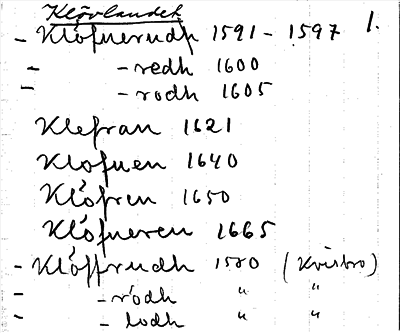 Klövlandet
- Klöfnerudh 1591 - 1597 1.
- - redh 1600
- - rodh 1605
Klefran 1621
Klöfnen 1640
Klöfren 1650
Klöfneren 1665
- Klöffrudh 1580 (Kvisbro)
- - rödh " "
- - lodh " "